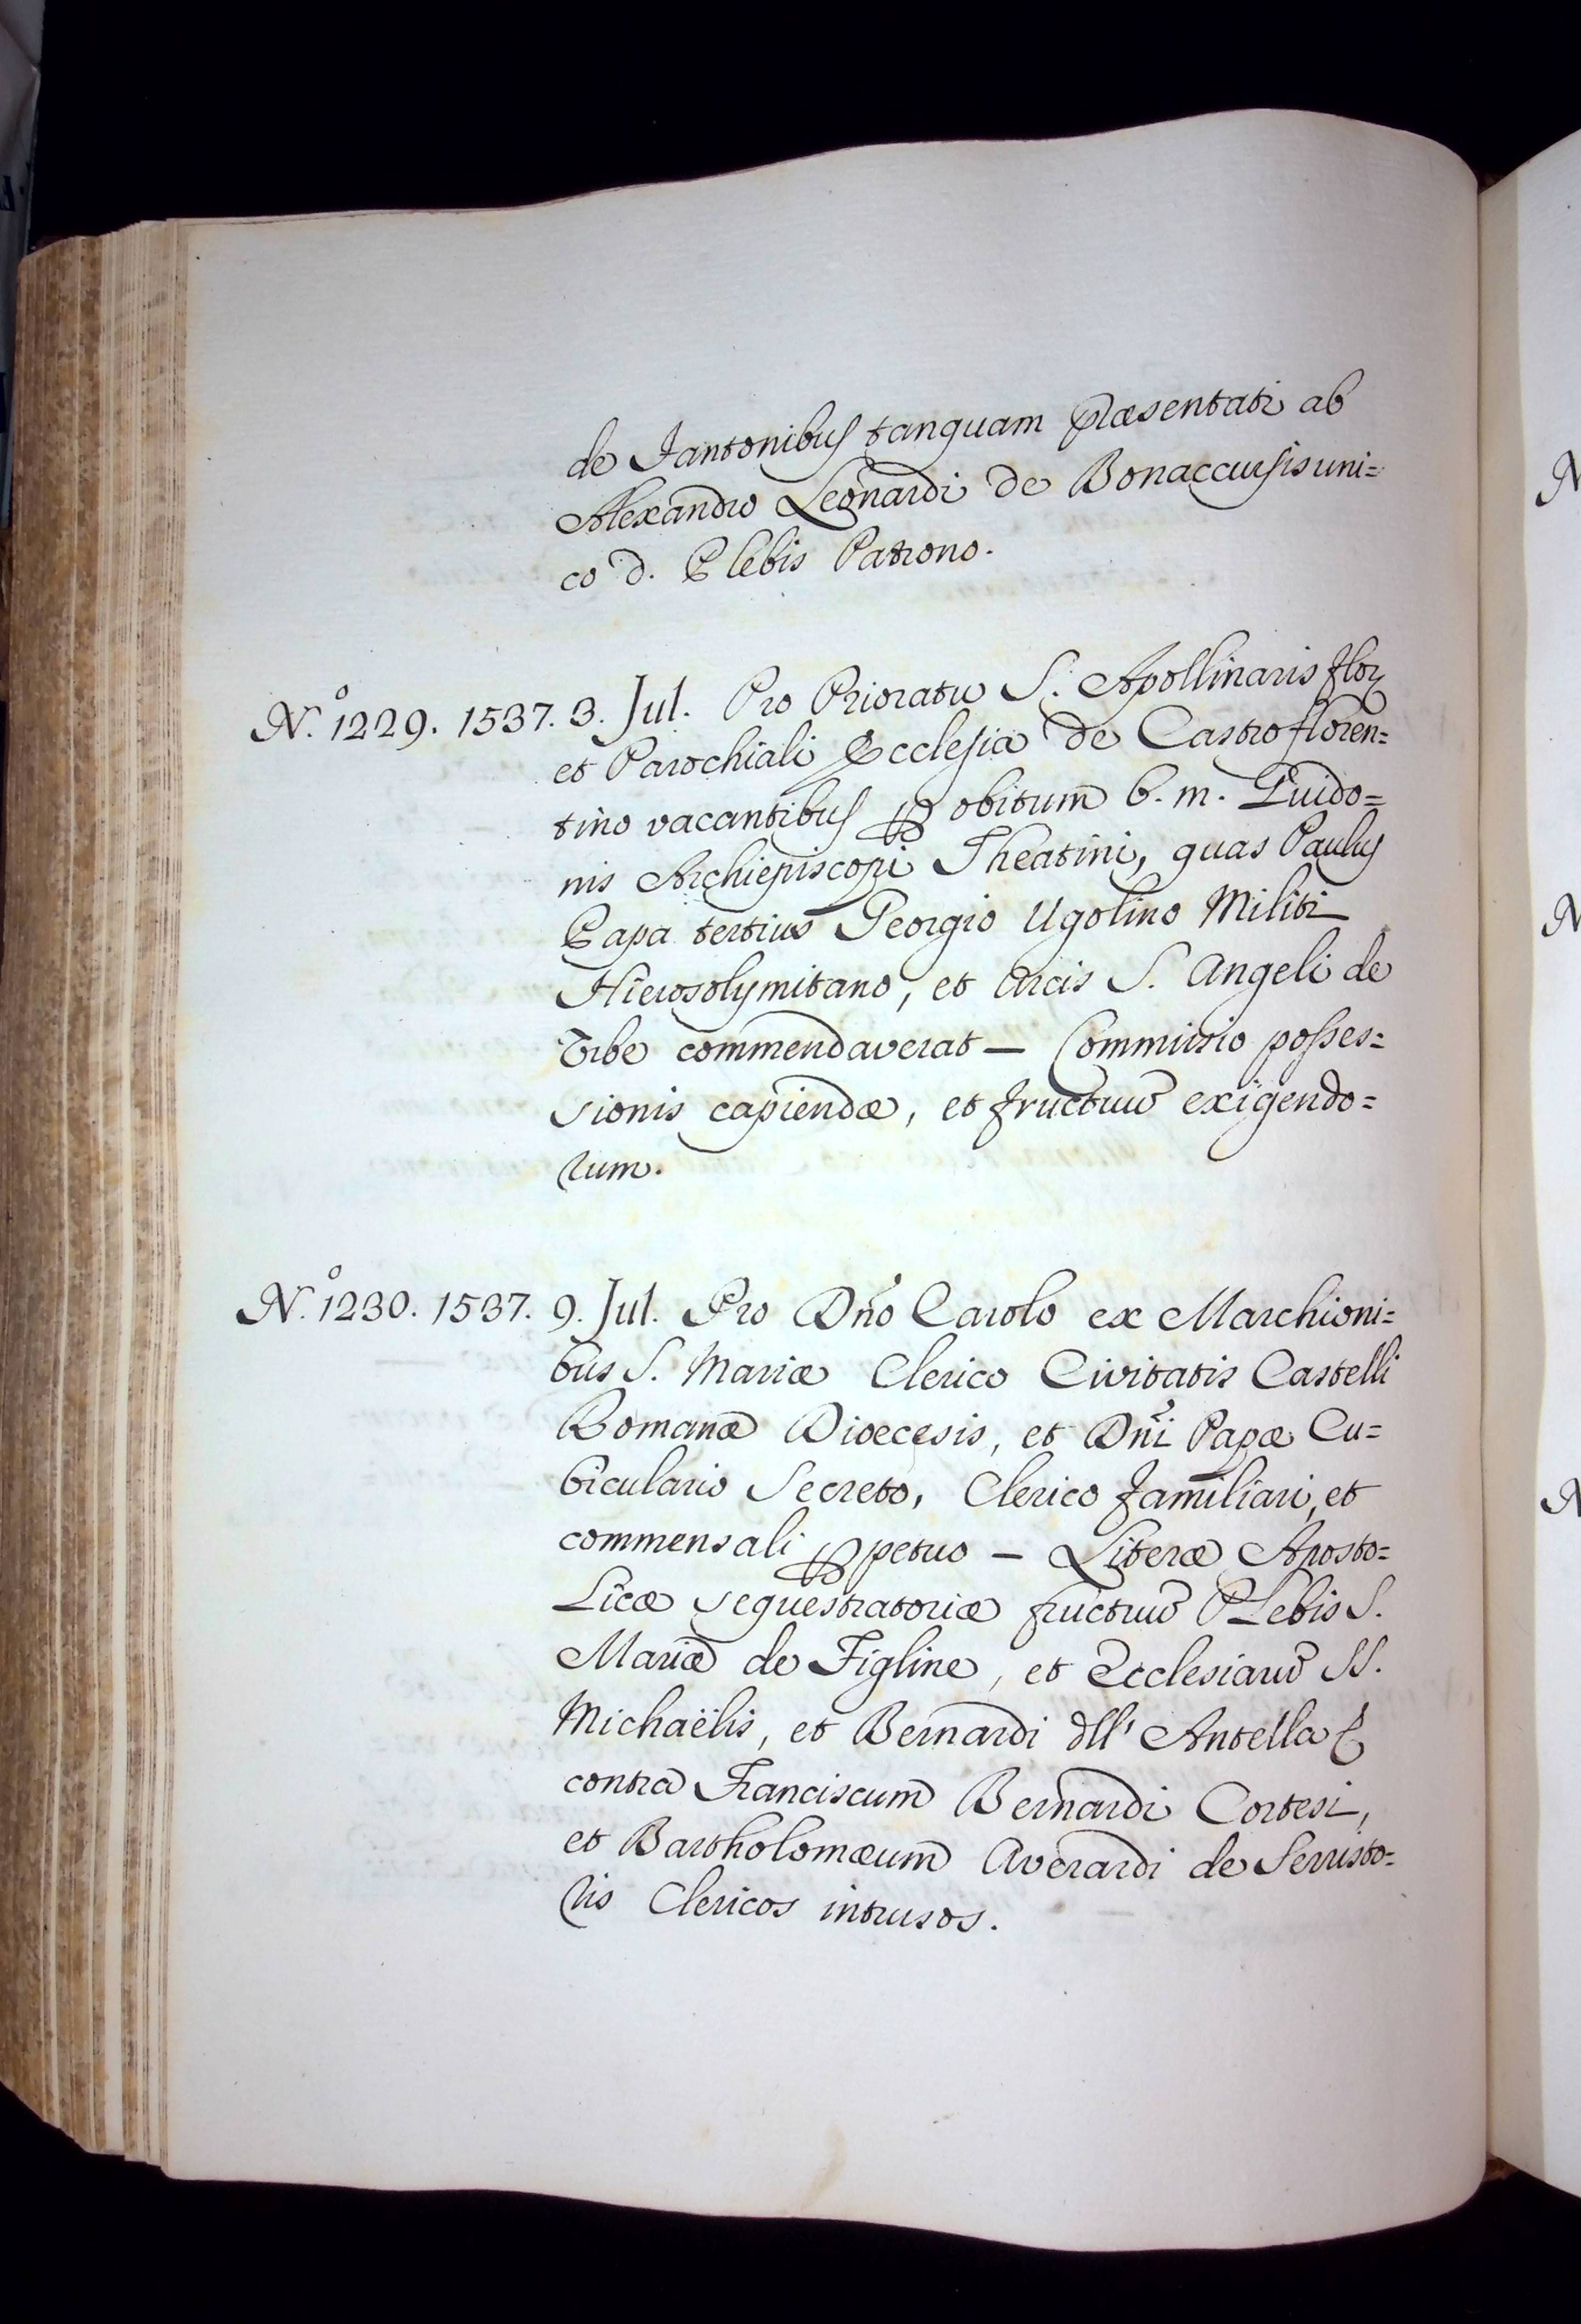 de Jantonibus tanquam præsentati ab
Alexandro Leonardi de Bonaccursis uni=
co d. Plebis Patrono.
N.º 1229. 1537. 3. Jul. Pro Prioratu S. Apollinaris flor.
et Parochiali Ecclesia de Castro floren=
tino vacantibus p obitum b. m. Guido=
nis Archiepiscopi Theatini, quas Paulus
Papa tertius Georgio Ugolino Militi
Hierosolymitano, et Arcis S. Angeli de
Urbe commendaverat — Commissio posses=
sionis capiendæ, et fructuũ exigendo=
rum.
N.º 1230. 1537. 9. Jul. Pro Dño Carolo ex Marchioni=
bus S. Mariæ Clerico Civitatis Castelli
Romanæ Dioecesis, et Dñi Papæ Cu=
biculario Secreto, Clerico familiari, et
commensali ppetuo — Literæ Aposto=
licæ sequestratoriæ fructuũ Plebis S.
Mariæ de Figline, et Ecclesiarũ SS.
Michaëlis, et Bernardi dll' Antella
contra Franciscum Bernardi Cortesi,
et Bartholomæum Averardi de Serristo=
ris Clericos intrusos.